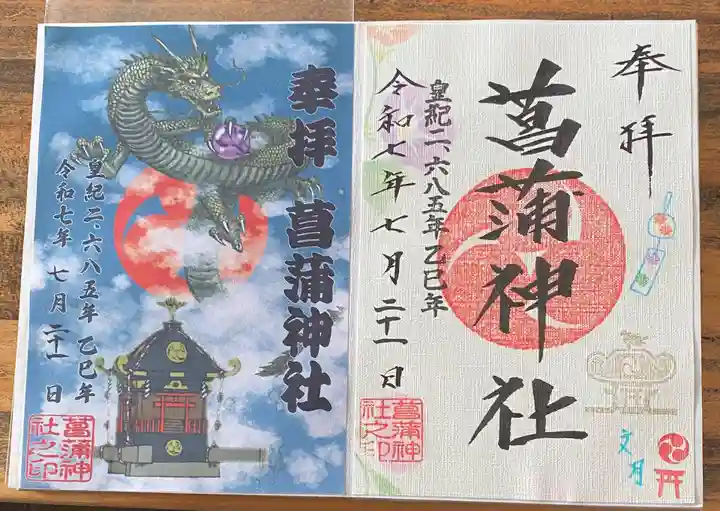 奉拝 菖蒲神社
皇紀二、六八五年 乙巳年
令和七年 七月 二十一日
菖蒲神
社之印
奉拝
菖蒲神社
皇紀二、六八五年 乙巳年
令和七年七月二十一日
菖蒲神
社之印
文月